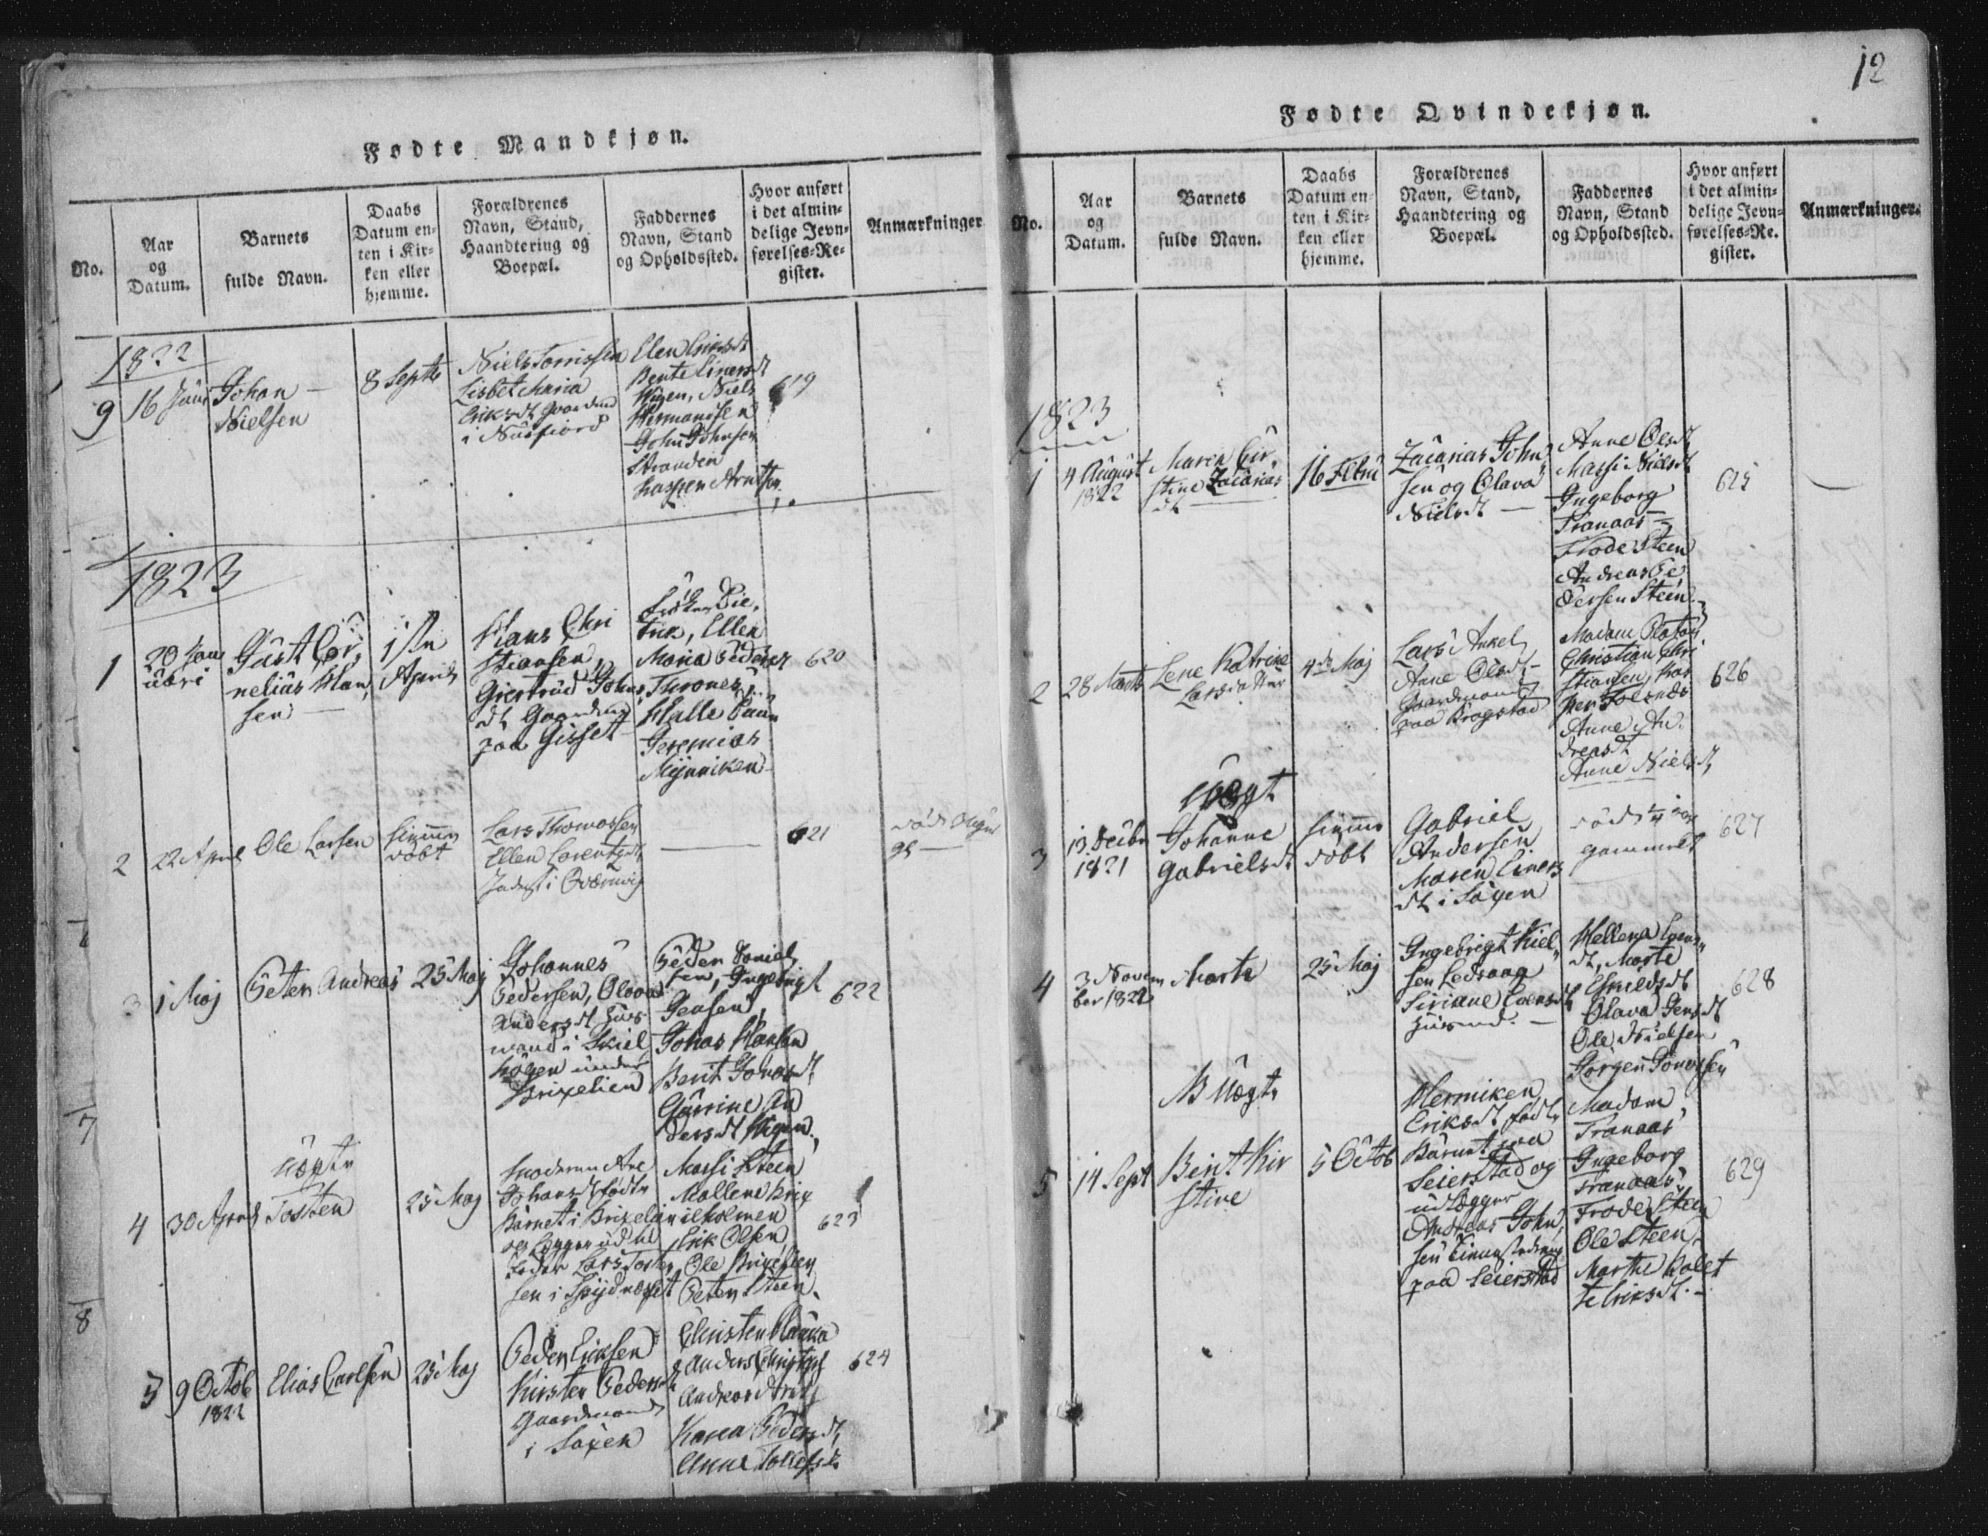 Fødte Mandkjøn.
No.
Aar
og
Datum.
Barnets
fulde Navn.
Daabs
Datum en-
ten i Kir-
ken eller
hjemme.
Forældrenes
Navn, Stand,
Haandtering og
Boepæl.
Faddernes
Navn, Stand
og Opholdssted.
Hvor anført
i det almin-
delige Jevn-
førelses-Re-
gister.
Anmærkninger
1822
9
16 Juni
Johan
Nielsen
8 Septr
Niels Tomissen
Lisbet Maria
Eriksdt
i Nusfiord
Elen Eriksdt
Bente Einersdt
Wigen, Niels
Hermansen
John Johnsen
Stranden
Kasper Arntsen
619
1823
1
20 Jan
uari
Just Cor,
nelius Han,
sen
1ste
April
Hans Chri
stiansen
Giertrud Johns
dt
paa Gisset
Ellen
Maria Peders
Thrones
Halle
Jeremias
Mynniken
620
2
22 April
Ole Larsen
hiemme
døbt
Lars Thomassen
Ellen Lorentzdt
621
død
3
1 Maj
Peter Andreas
25 Maj
Johannes
Pedersen, Olava
Andersdt Huus
mand i Skiel
hogen under
Brixelien
Peder Daniel
sen, Ingebrigt
Jensen
Jonas Hansen
Berit Jonasdt
Gurine An
dersdt Wigen
622
4
uægte
30 April
Tosten
25 Maj
Moderen Ane
Johansdt fødte
Barnet i Brixelien
og Lægger ud til
Fader Lars Toste
sen i Spydnæsset
Massi Steen
Mallene Brix
ilholmen
Erik Olsen
Ole Brixelien
Peter Steen
623
5
9 Octob
1822
Elias Carlsen
25 Maj
Peder Eriksen
Kirsten Pedersdt
Gaardmand
i Saxen
Christen
Anders Christens
Andreas
Karen Pedersdt
Anne Tollefsdt
624
12
Fødte Qvindekjøn.
No.
Aar
og
Datum.
Barnets
fulde Navn.
Daabs
Datum en-
ten i Kir-
ken eller
hjemme.
Forældrenes
Navn, Stand,
Haandtering og
Boepæl.
Faddernes
Navn, Stand
og Opholdssted.
Hvor anført
i det almin-
delige Jevn-
førelses-Re-
gister.
Anmærkninger.
1823
1
4 August
1822
Maren Cir,
stine Zacarias
dt
16 Febru
Zacarias John,
sen og Olava
Nielsdt
Anne Olsdt
Massi Nielsdt
Ingeborg
Tranaas
Frode Steen
Andreas Pe
dersen Steen
625
2
28 Marts
Lene Katrine
Larsdatter
4de Maj
Lars Ankel,
Anne Olsdt
Gaardmand
paa Krogstad
Madam
Christian Chri
stiansen,
Anne An
dreasdt
Anne Nielsdt
626
uægt
3
13 Decbr
1821
Johanne
Gabrielsdt
hiemme
døbt
Gabriel
Andersen
Maren Einers
dt i Saxen
død
gammel
627
4
3 Novem
ber 1822
Marte
25 Maj
Ingebrigt Kiel,
sen Ledsaag
Siriane
Huusmd.
Hellena
dt, Marte
Olava Jensdt
Ole Nielsen
Jorgen Jonassen
628
B Uægte
5
14 Sept
Berit Kir
stine
5 Octob
Hermiken
Eriksdt fødte
Barnet paa
Seierstad og
udlægger
Andreas John,
sen
paa Seierstad
Madam
Tranaas
Ingeborg
Tranaas
Frode Steen
Ole Steen
Marthe Kolet
te Eriksdt.
629
7
8